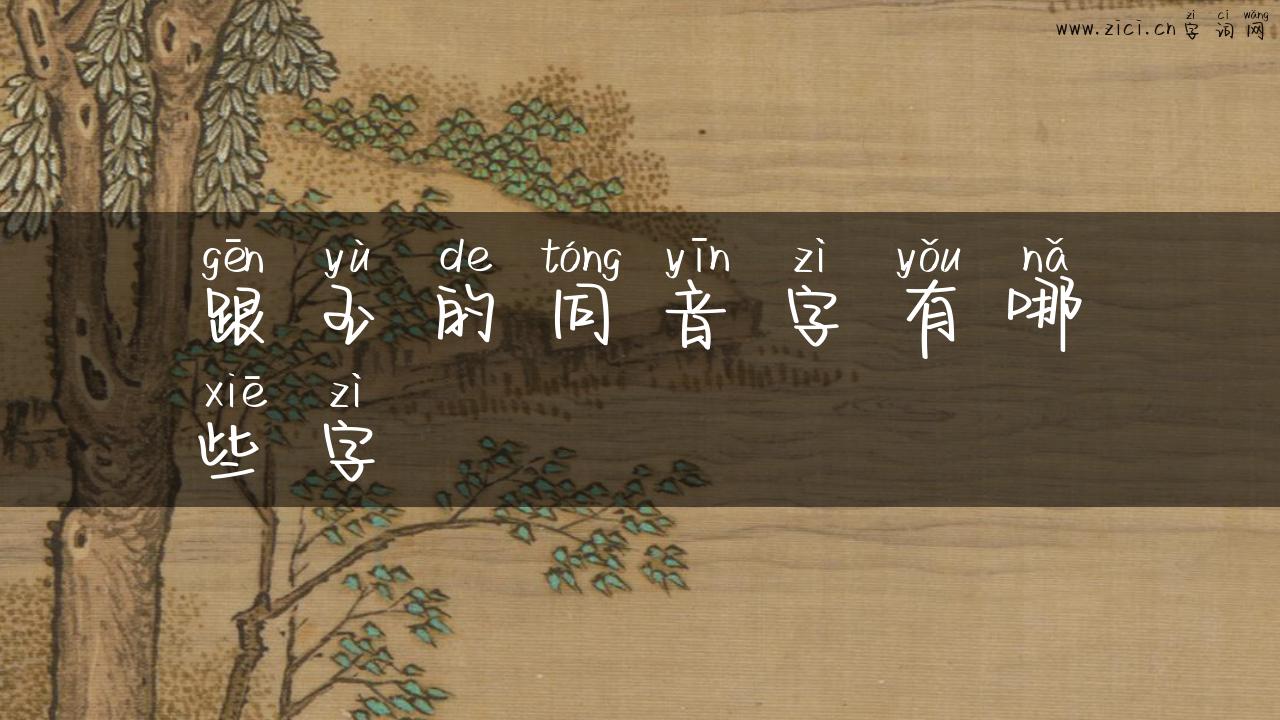 zì cí wǎng
www.zici.cn 字词网
gēn yù de tóng yīn zì yǒu nǎ
跟玉的同音字有哪
xiē zì
些字